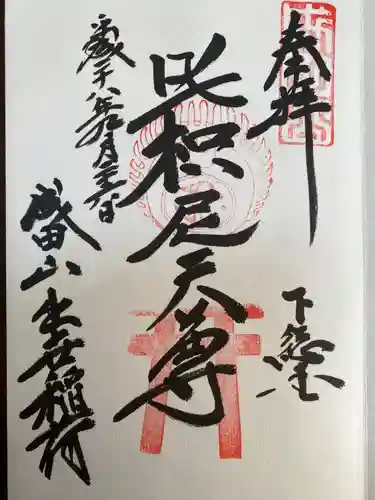 奉拝
下総国
吒枳尼天尊
平成廿八年 月 日
成田山 出世稲荷